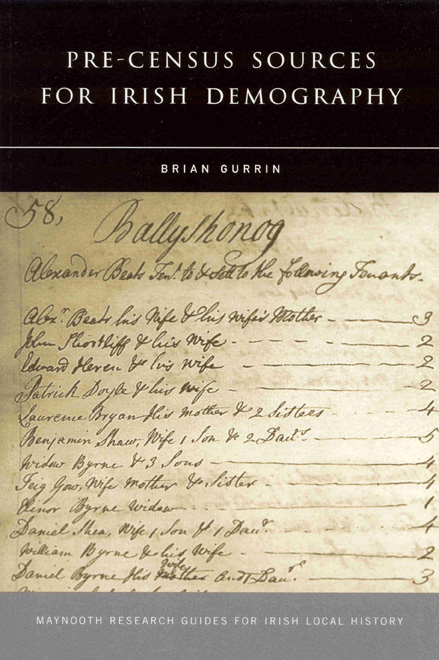 PRE-CENSUS SOURCES
FOR IRISH DEMOGRAPHY
BRIAN GURRIN
58,
Ballyshonog
Alexander Beats Tent. to & Sett to the following Tenants.
Alexr. Beats his Wife & his Wife's Mother - 3
John Shortliff & his Wife - 2
Edward Heren & his Wife - 2
Patrick Doyle & his Wife - 2
Laurence Bryan His Mother & 2 Sisters - 4
Benjamin Shaw, Wife 1 Son & 2 Daurs. - 5
Widow Byrne & 3 Sons - 4
Teig Gow, Wife Mother & Sister - 4
Elinor Byrne Widow - 1
Daniel Shea, Wife 1 Son & 1 Daur. - 4
William Byrne & his Wife - 2
Daniel Byrne His Wife and 1 Daur. - 3
MAYNOOTH RESEARCH GUIDES FOR IRISH LOCAL HISTORY